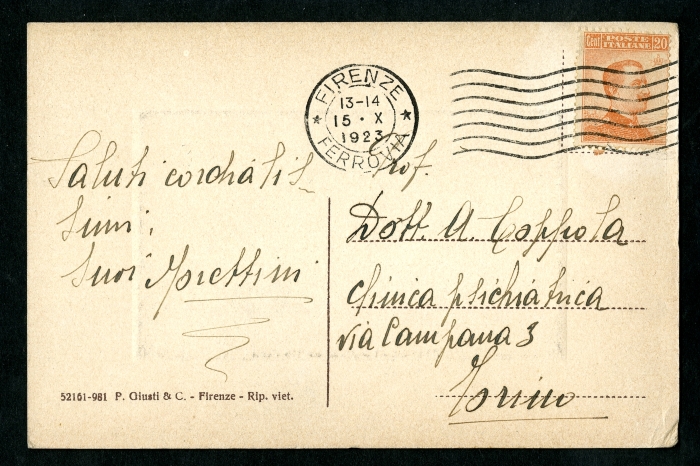 Cent POSTE ITALIANE 20
FIRENZE
13-14
15 · X
1923
FERROVIA
Saluti cordialis-
simi,
suoi Morettini
Prof.
Dott. A. Coppola
Clinica psichiatrica
via Campana 3
Torino
52161-981 P. Giusti & C. - Firenze - Rip. viet.